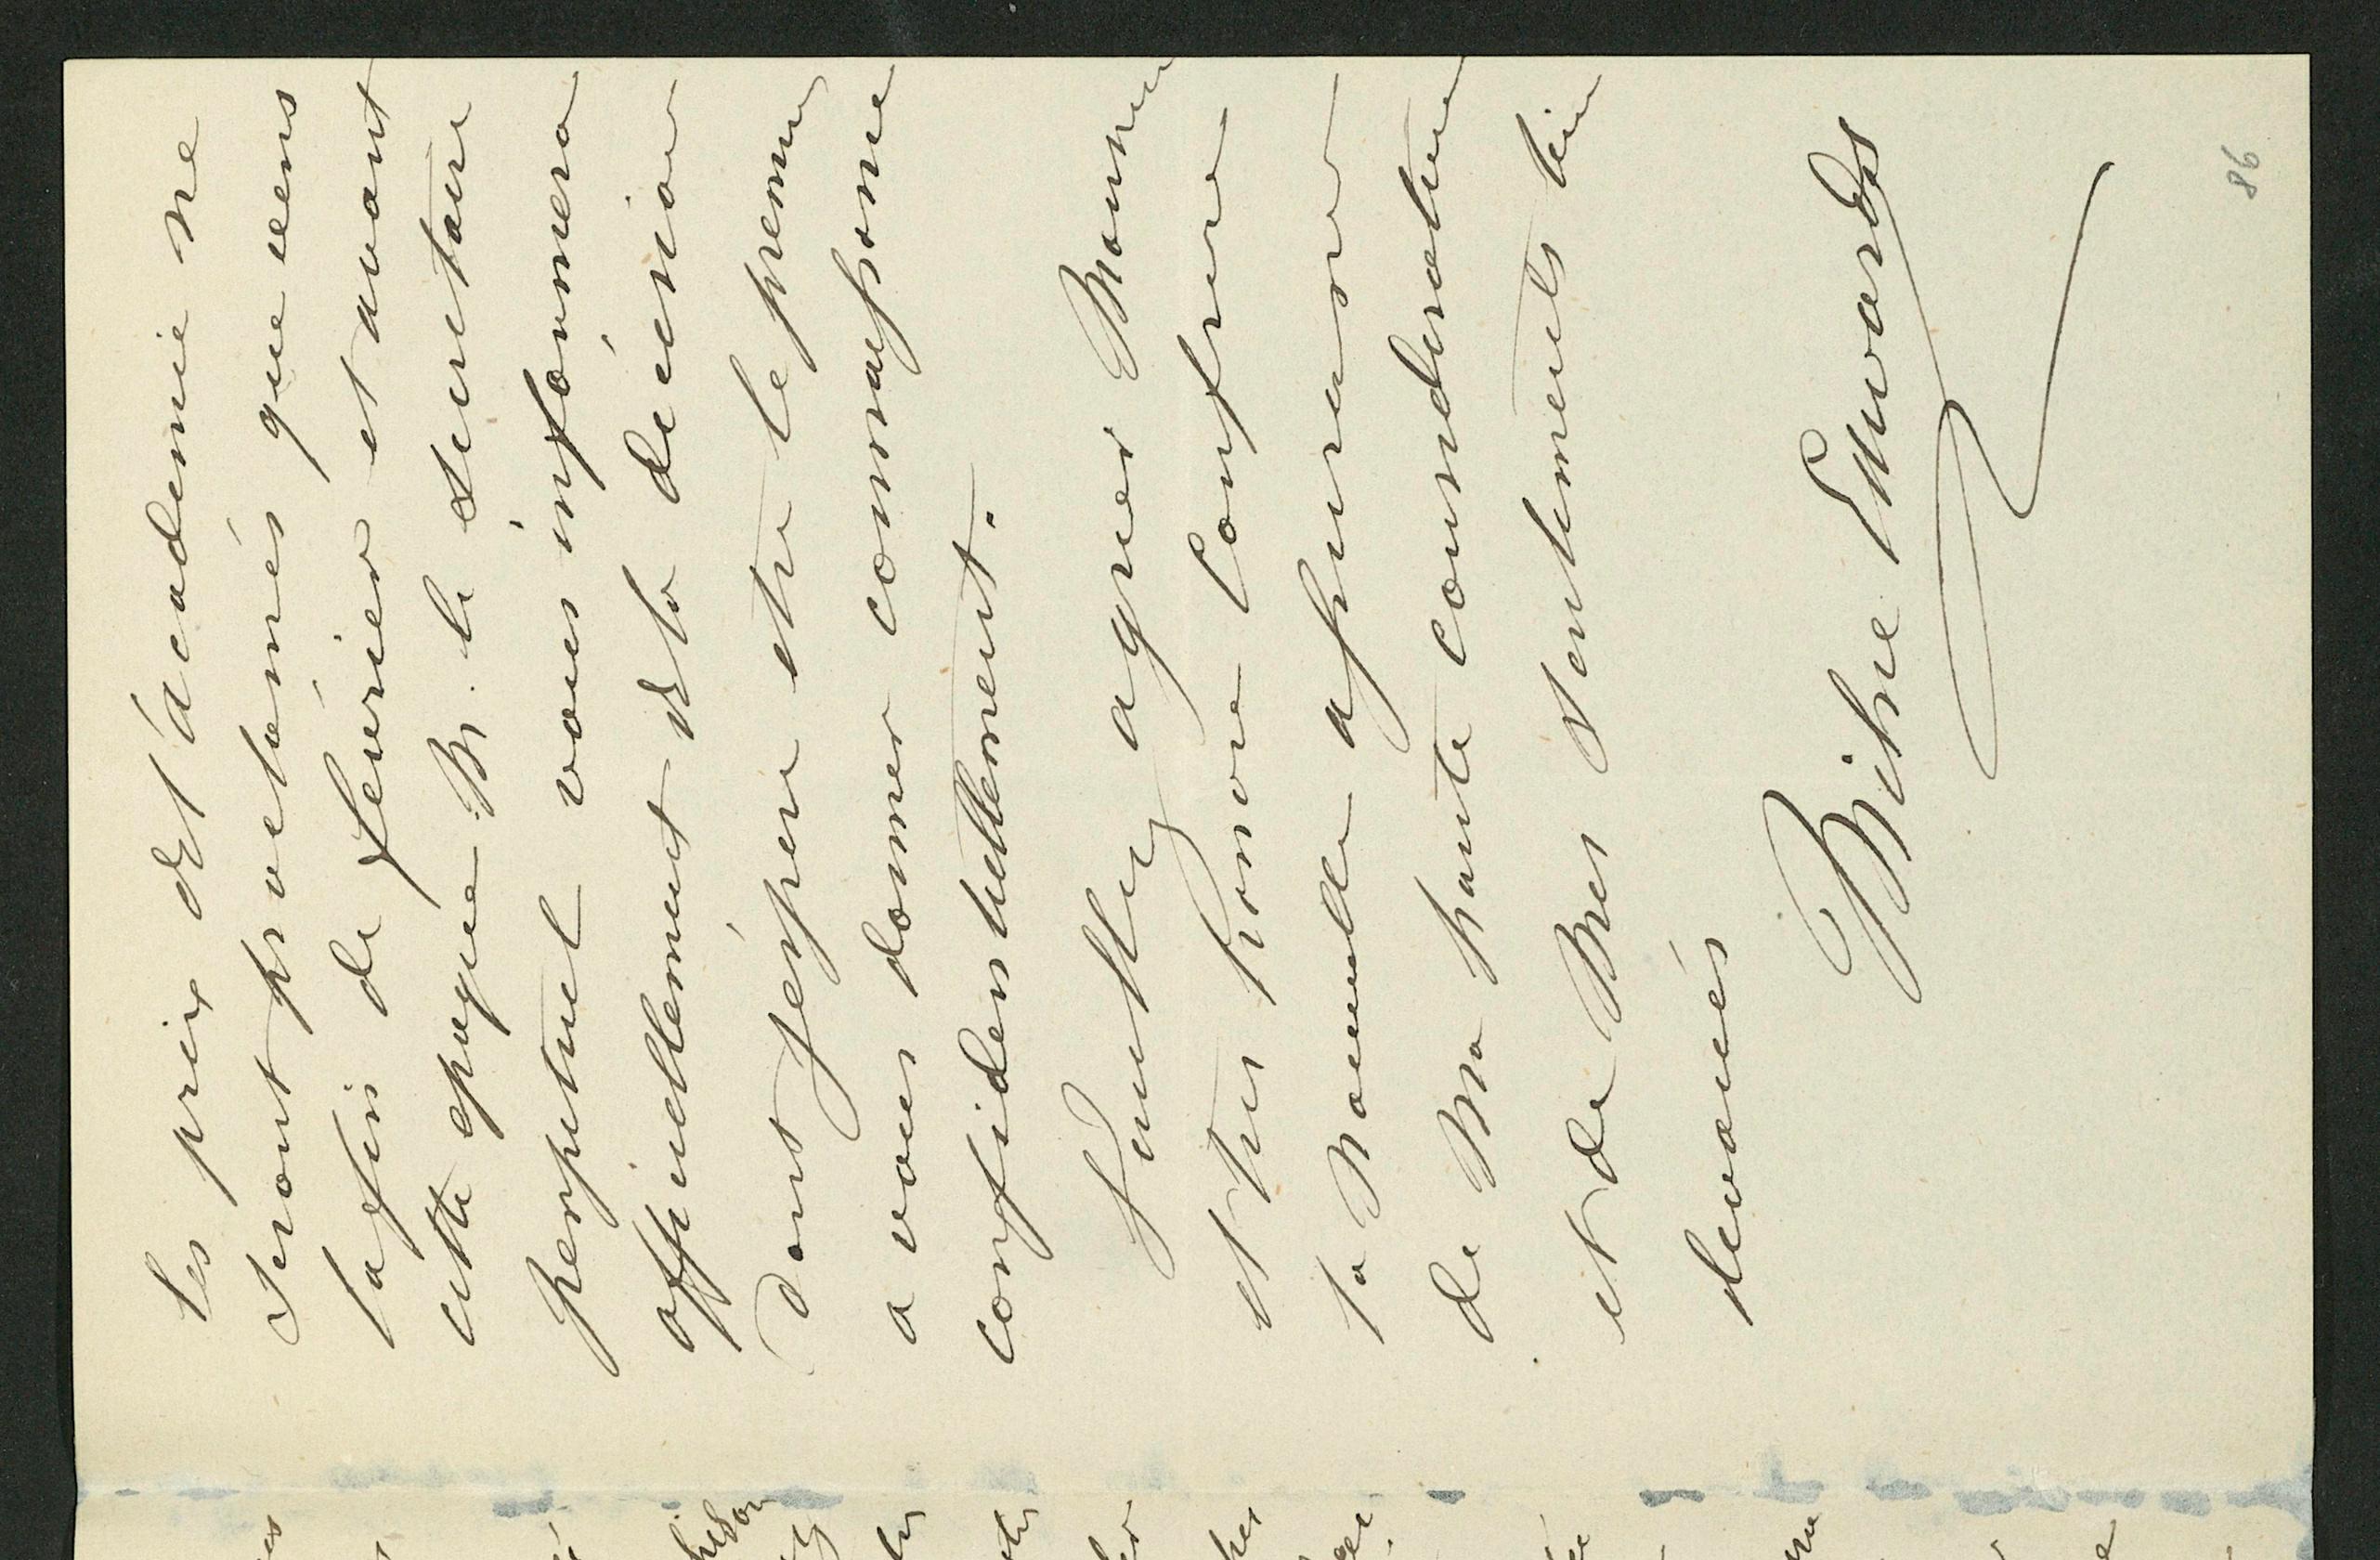 les prix de l'académie ne
seront proclamés que vers
la fin de février et avant
cette epoque M. le secretaire
perpetuel vous informera
officiellement de la décision
dont j'espere etre le premier
a vous donner connaissance
confidentiellement.
Veuillez agreer Monsieur
et tres honoré Confrere
la nouvelle assurance
de Ma haute consideration
et de Mes sentiments bien
devoués
Milne Edwards
86